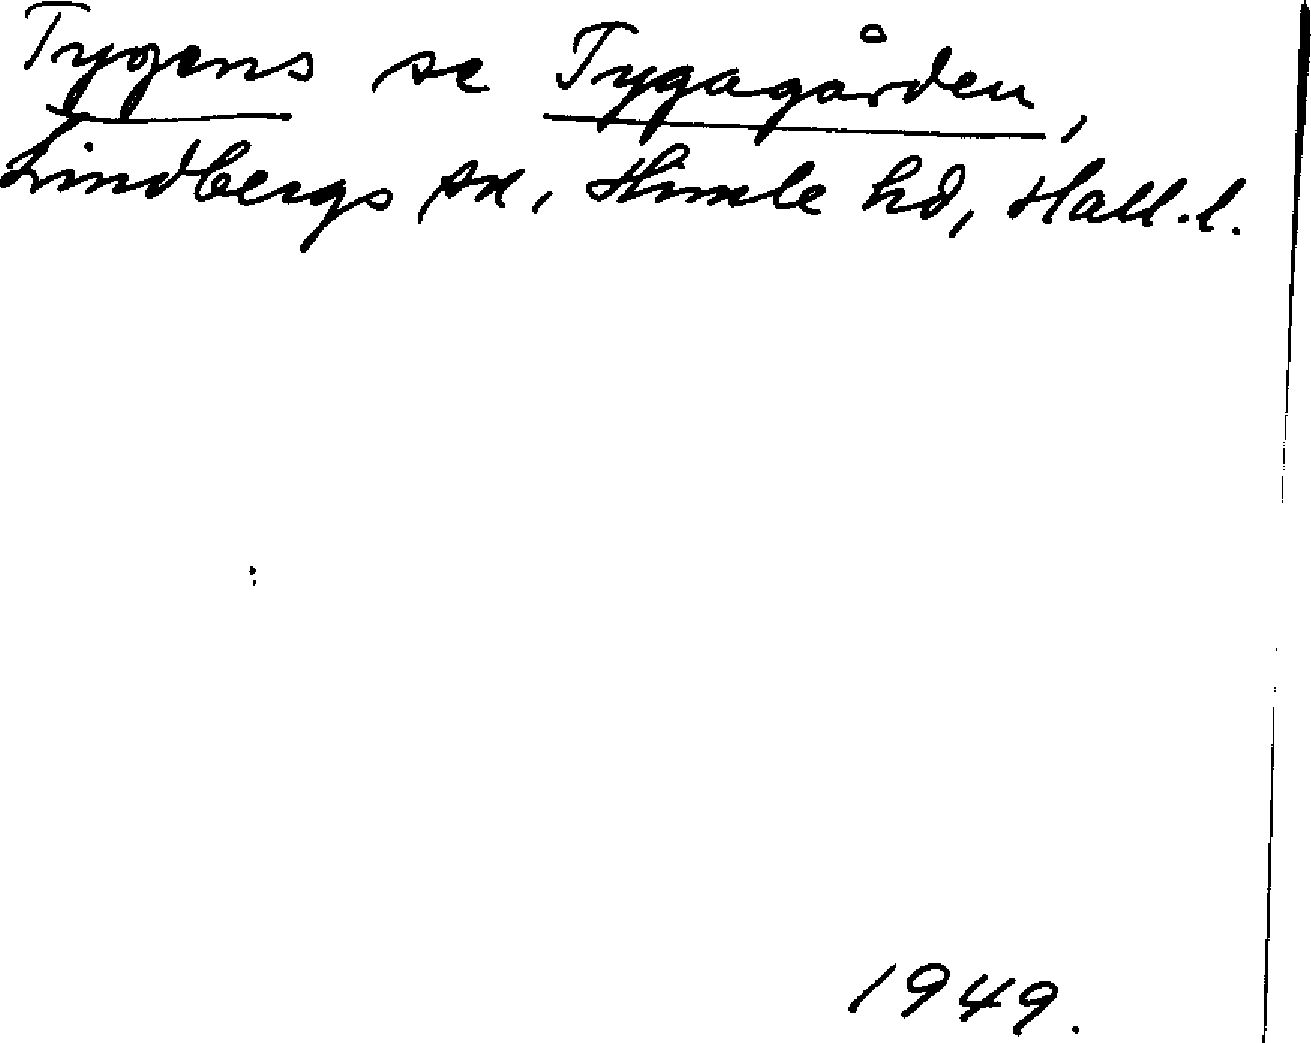 Tygens se Tygagården,
Lindbergs sn, Himle hd, Hall.l.
1949.